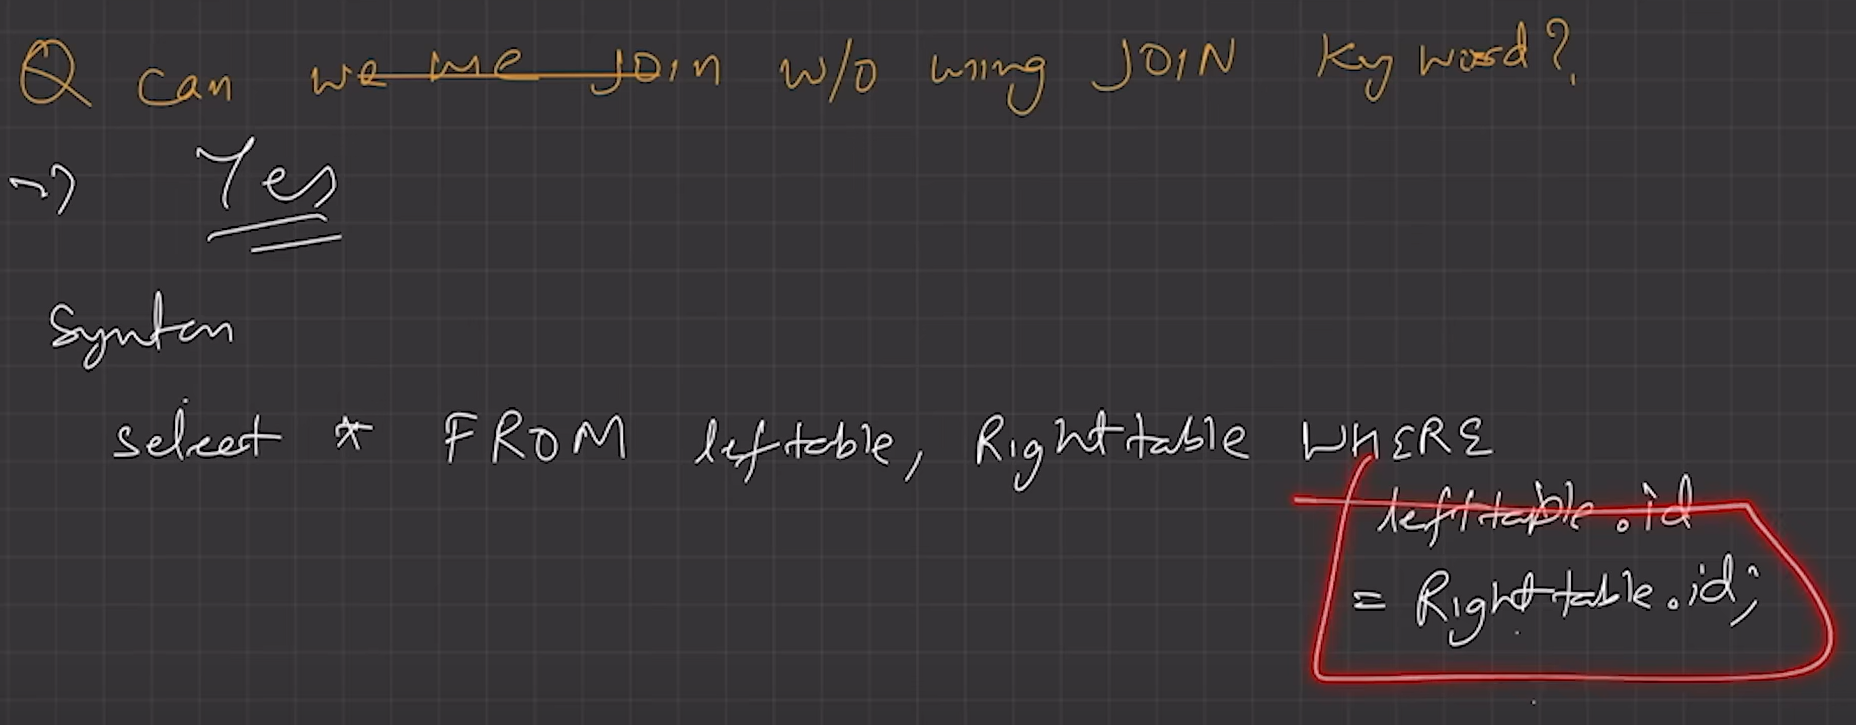 Q Can we use JOIN w/o using JOIN Keyword?
=> Yes
Syntax
select * FROM lefttable, Righttable WHERE
lefttable.id
= Righttable.id;